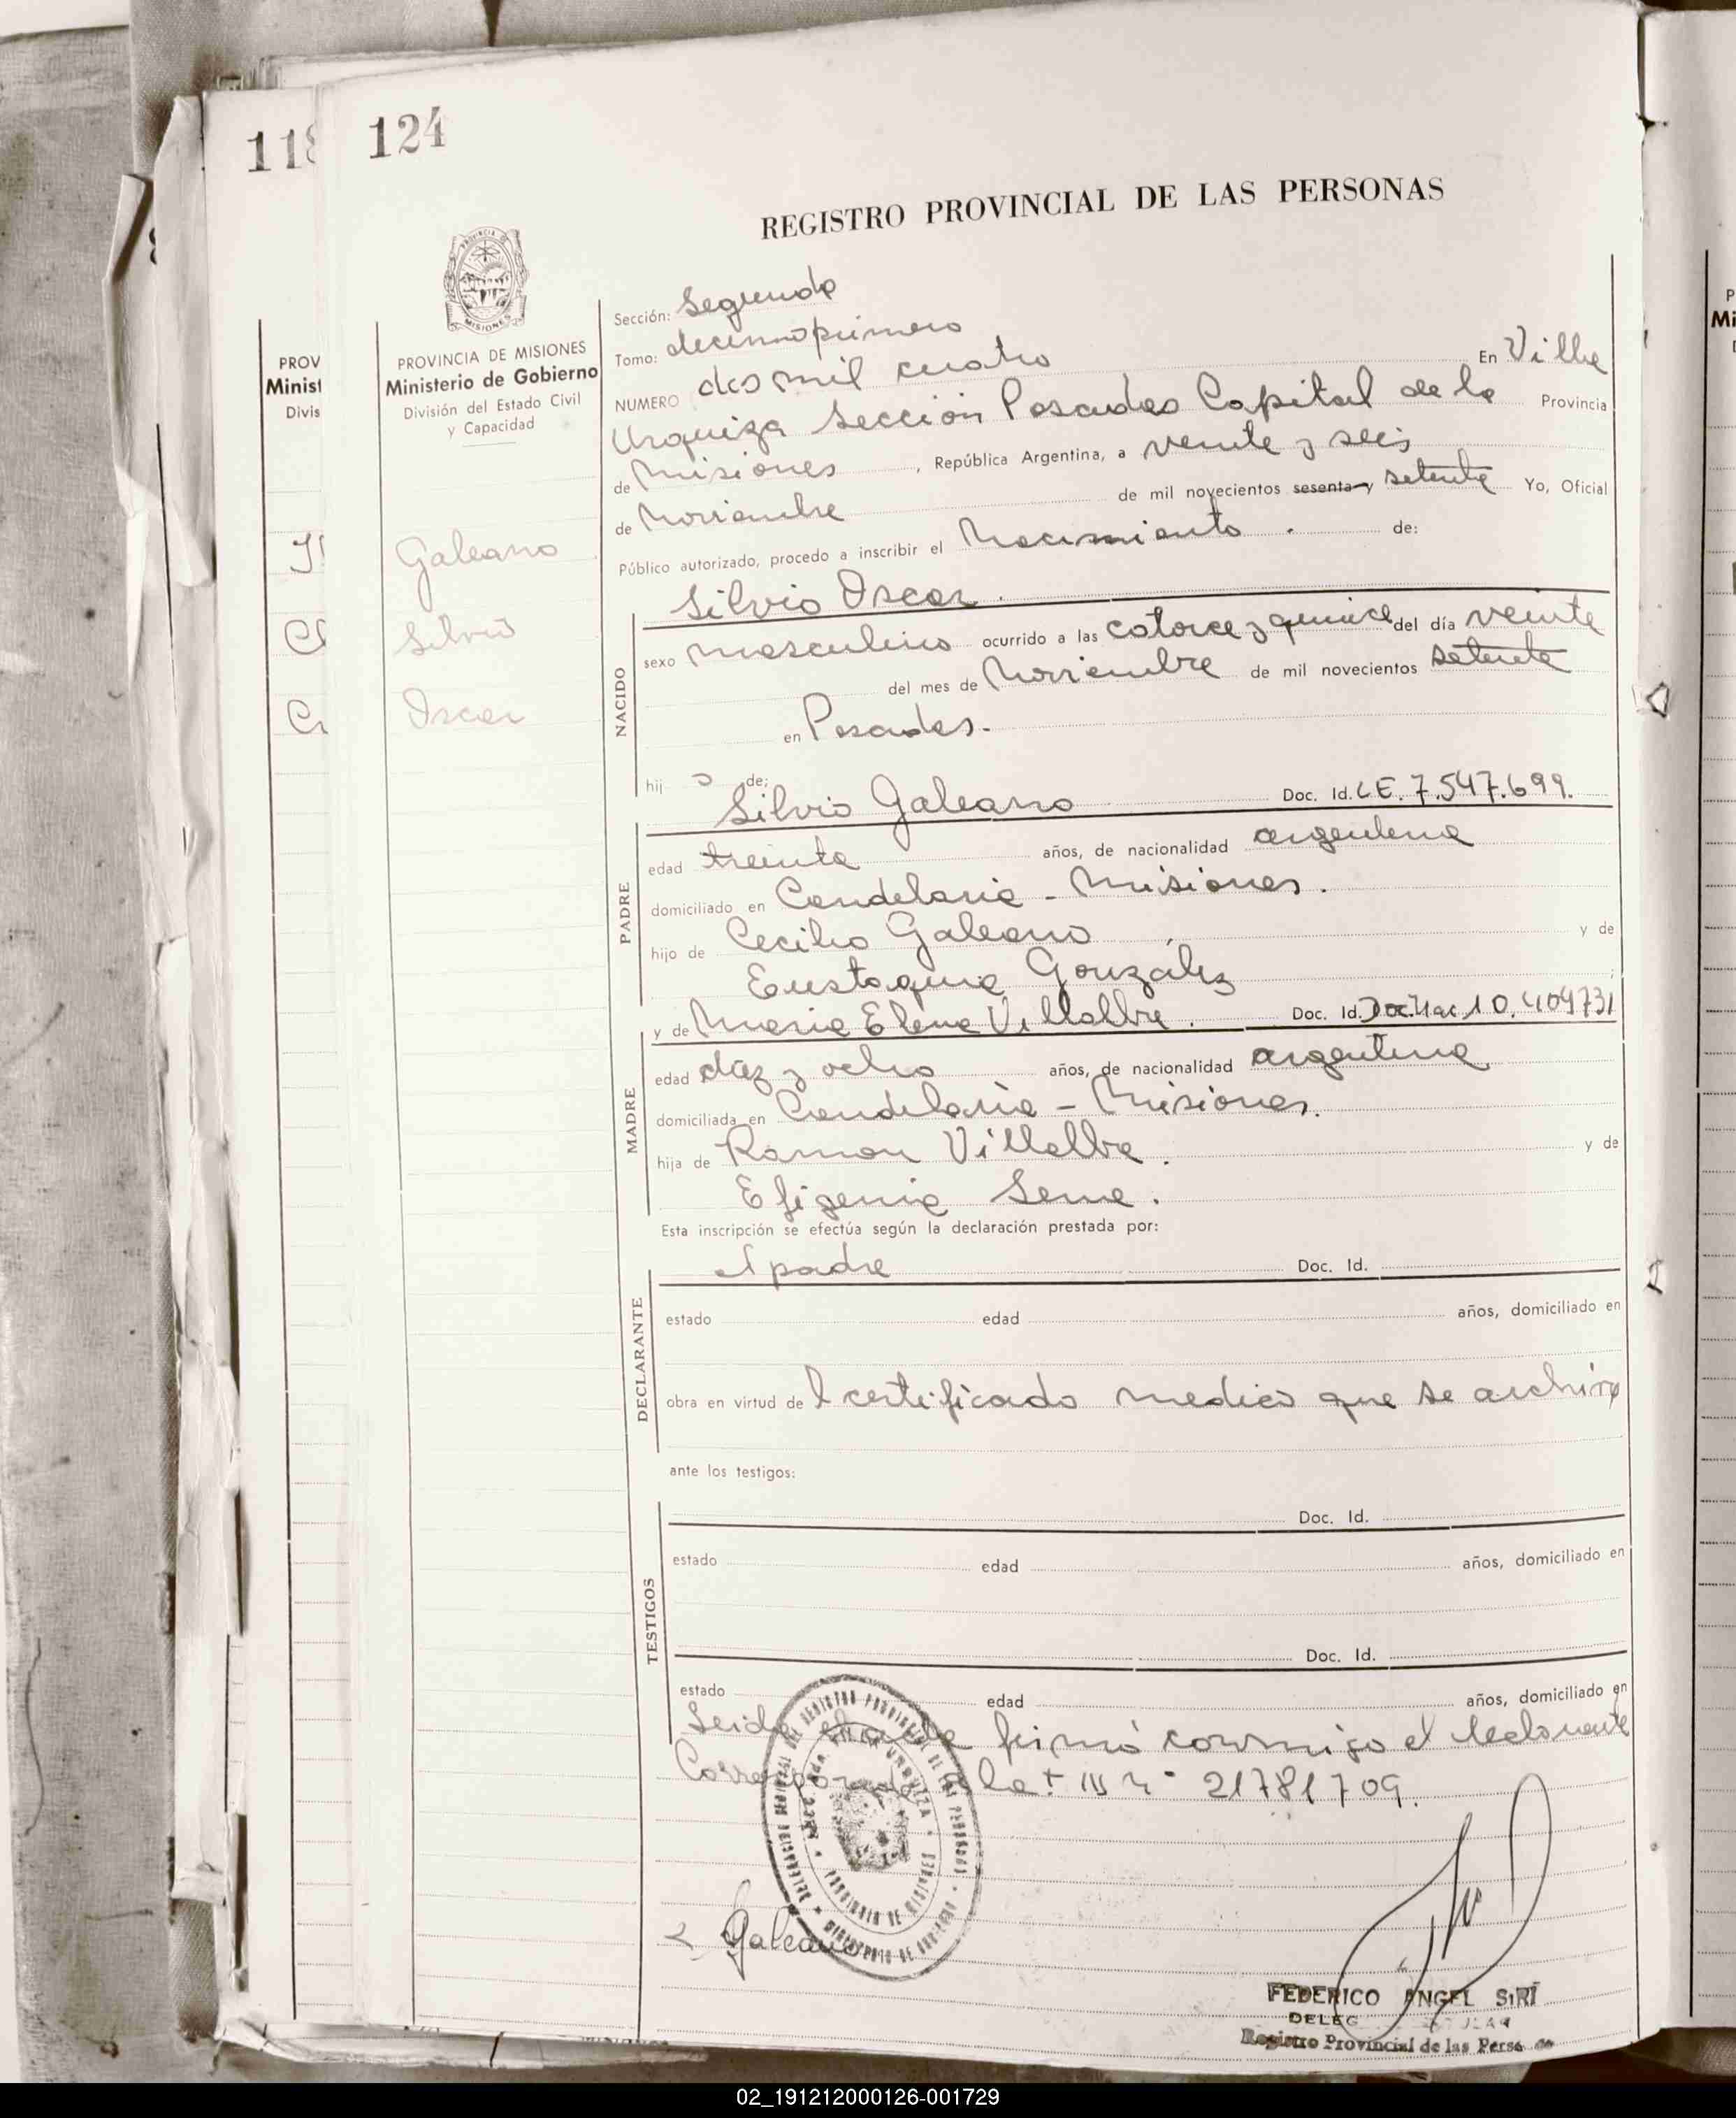 118
124
REGISTRO PROVINCIAL DE LAS PERSONAS
PROVINCIA DE MISIONES
Ministerio de Gobierno
División del Estado Civil
y Capacidad
PROV
Minist
Divis
Galeano
Silvio
Oscar
Sección: Segunda
Tomo: decimo primero
NUMERO dos mil cuatro En Villa
Urquiza Sección Posadas Capital de la Provincia
de Misiones, República Argentina, a veinte y seis
de Noviembre de mil novecientos sesenta y setenta Yo, Oficial
Público autorizado, procedo a inscribir el Nacimiento. de:
Silvio Oscar.
NACIDO
sexo masculino ocurrido a las catorce y quince del día veinte
del mes de Noviembre de mil novecientos setenta
en Posadas.
hijo de:
Silvio Galeano Doc. Id. L E. 7.547.699.
PADRE
edad treinta años, de nacionalidad argentina
domiciliado en Candelaria - Misiones.
hijo de Cecilio Galeano y de
Eustaquia González
y de Maria Elena Villalba. Doc. Id. Doc. Nac 10.409731
MADRE
edad diez y ocho años, de nacionalidad argentina
domiciliada en Candelaria - Misiones.
hija de Ramon Villalba. y de
Efigenia Sena.
Esta inscripción se efectúa según la declaración prestada por:
el padre Doc. Id.
DECLARANTE
estado edad años, domiciliado en
obra en virtud del certificado medico que se archiva
ante los testigos:
Doc. Id.
TESTIGOS
estado edad años, domiciliado en
Doc. Id.
estado edad años, domiciliado en
Leida el acta firmó conmigo el declarante
Corresponde la 21781709.
Galeano
FEDERICO ANGEL SIRÍ
Registro Provincial de las
02_191212000126-001729